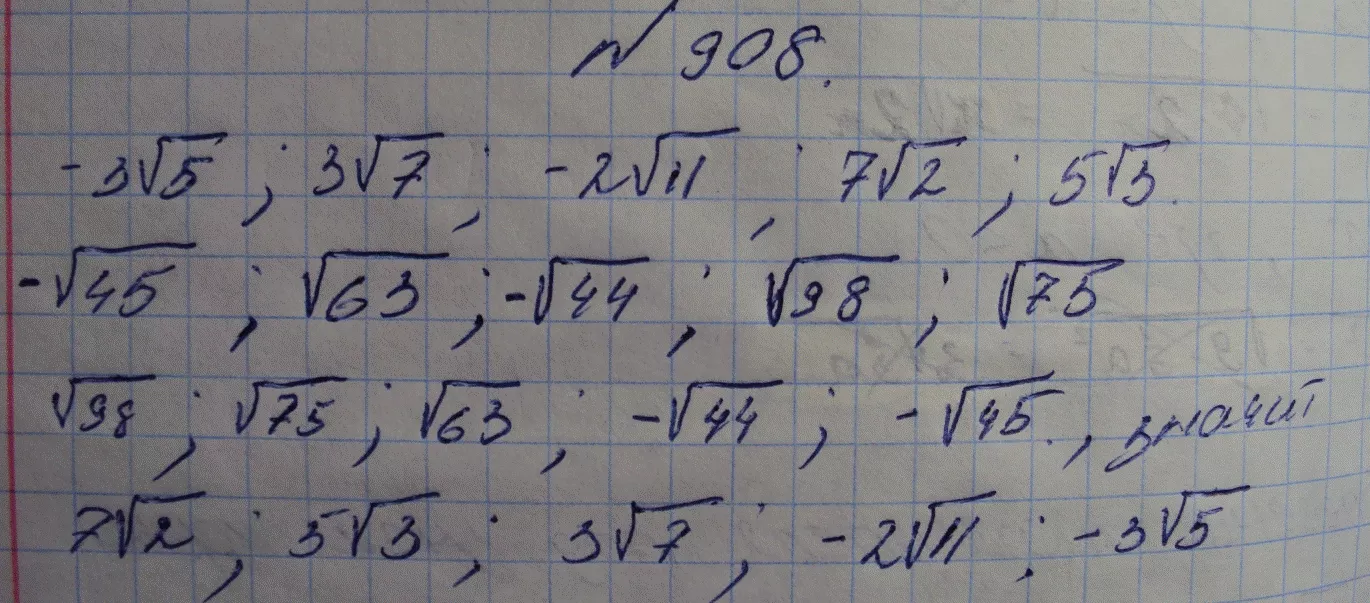 № 908.
-3√5 ; 3√7 ; -2√11 ; 7√2 ; 5√3.
-√45 ; √63 ; -√44 ; √98 ; √75
√98 ; √75 ; √63 ; -√44 ; -√45. , значит
7√2 ; 5√3 ; 3√7 ; -2√11 ; -3√5